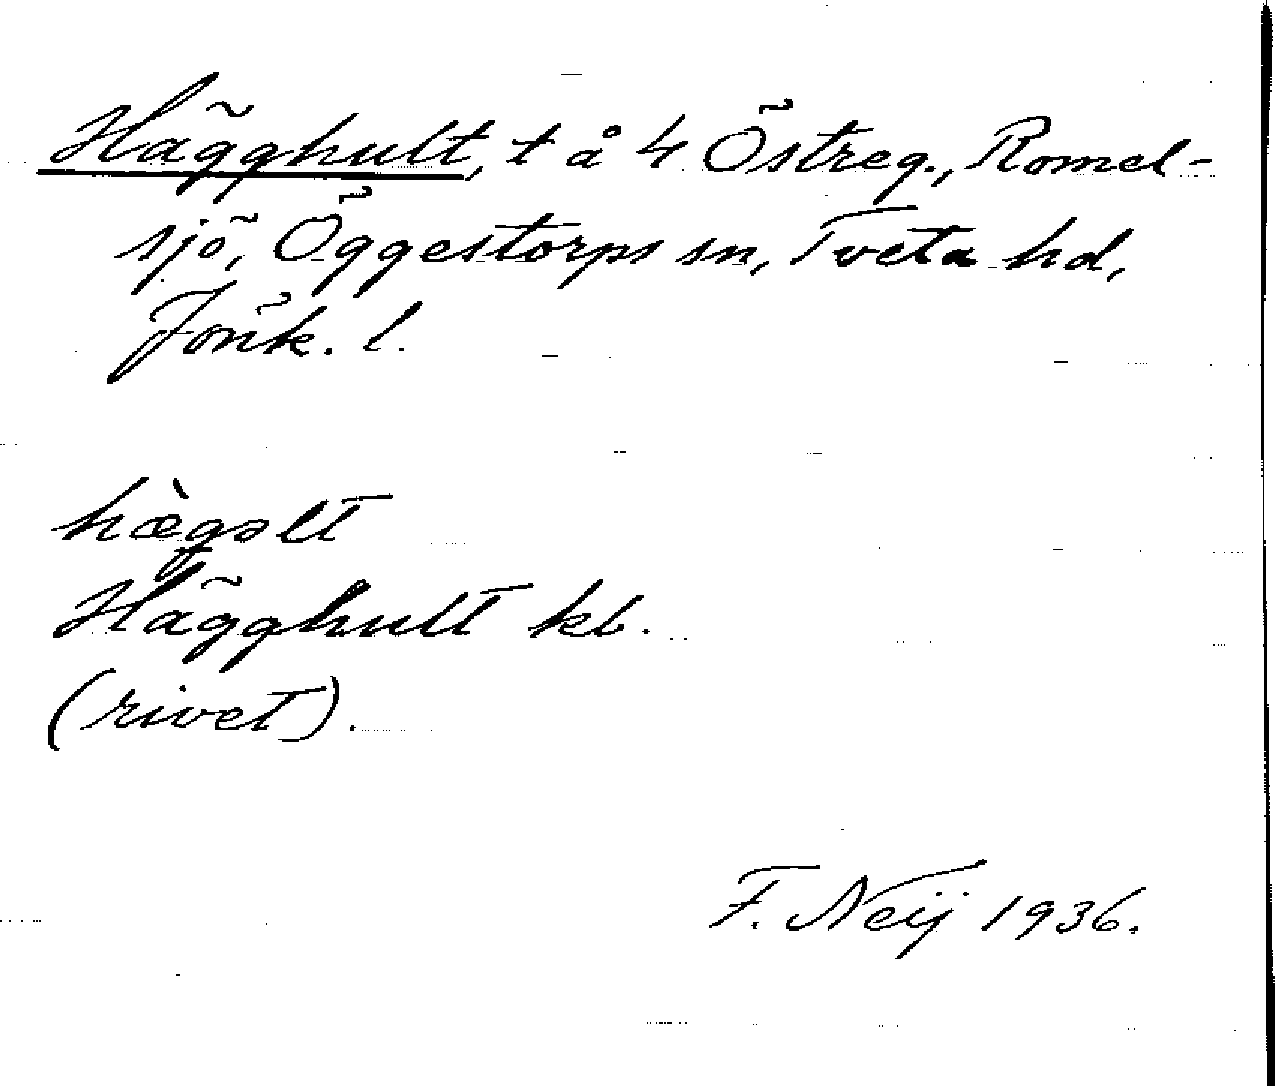 Hägghult, t å 4 Östreg., Romel-
sjö, Öggestorps sn, Tveta hd,
Jönk. l.
hæ̀gəlt
Hägghult kb.
(rivet).
F. Neij 1936.